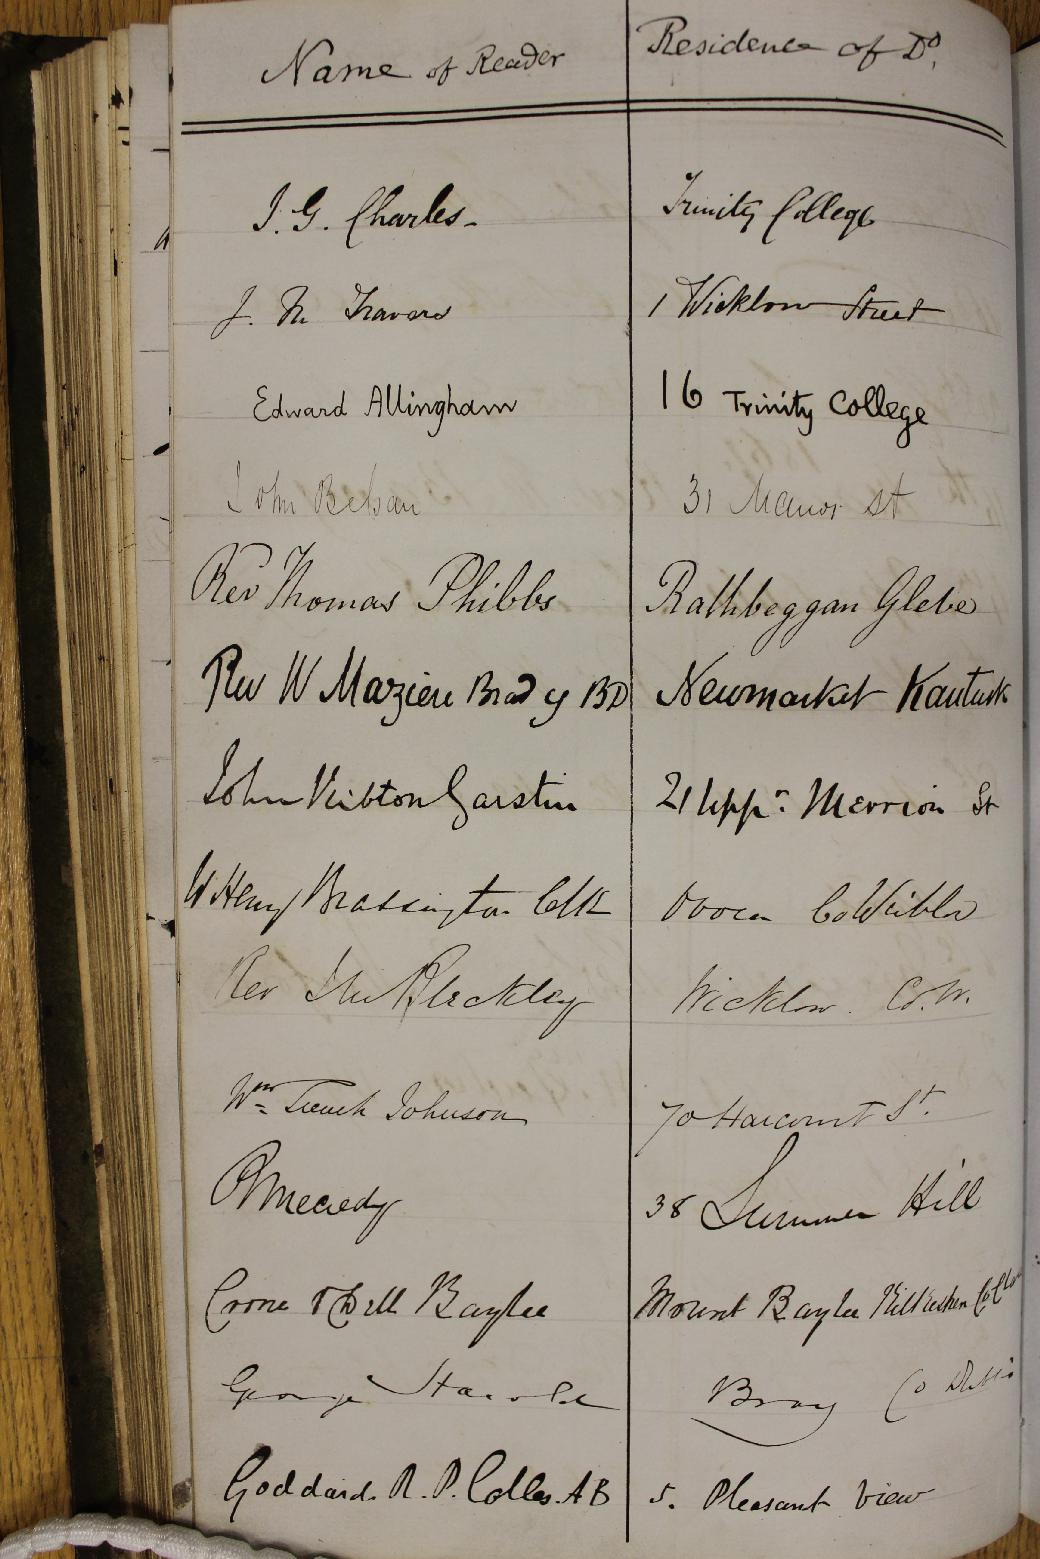 Name of Reader Residence of Do.
J. G. Charles Trinity College
J. M. Travers 1 Wicklow Street
Edward Allingham 16 Trinity College
John 31 Manor St
Rev Thomas Phibbs Rathbeggan Glebe
Rev W Maziere Brady BD Newmarket Kanturk
John Ribton Garstin 21 Uppr. Merrion St
W Henry Brassington Clk Co
Rev Bleckley Wicklow Co. W.
Wm French Johnson 70 Harcourt St.
38 Summer Hill
Crone Baylee Mount Baylee
George Harold Bray Co
Goddard R. P. Colles. AB 5. Pleasant View